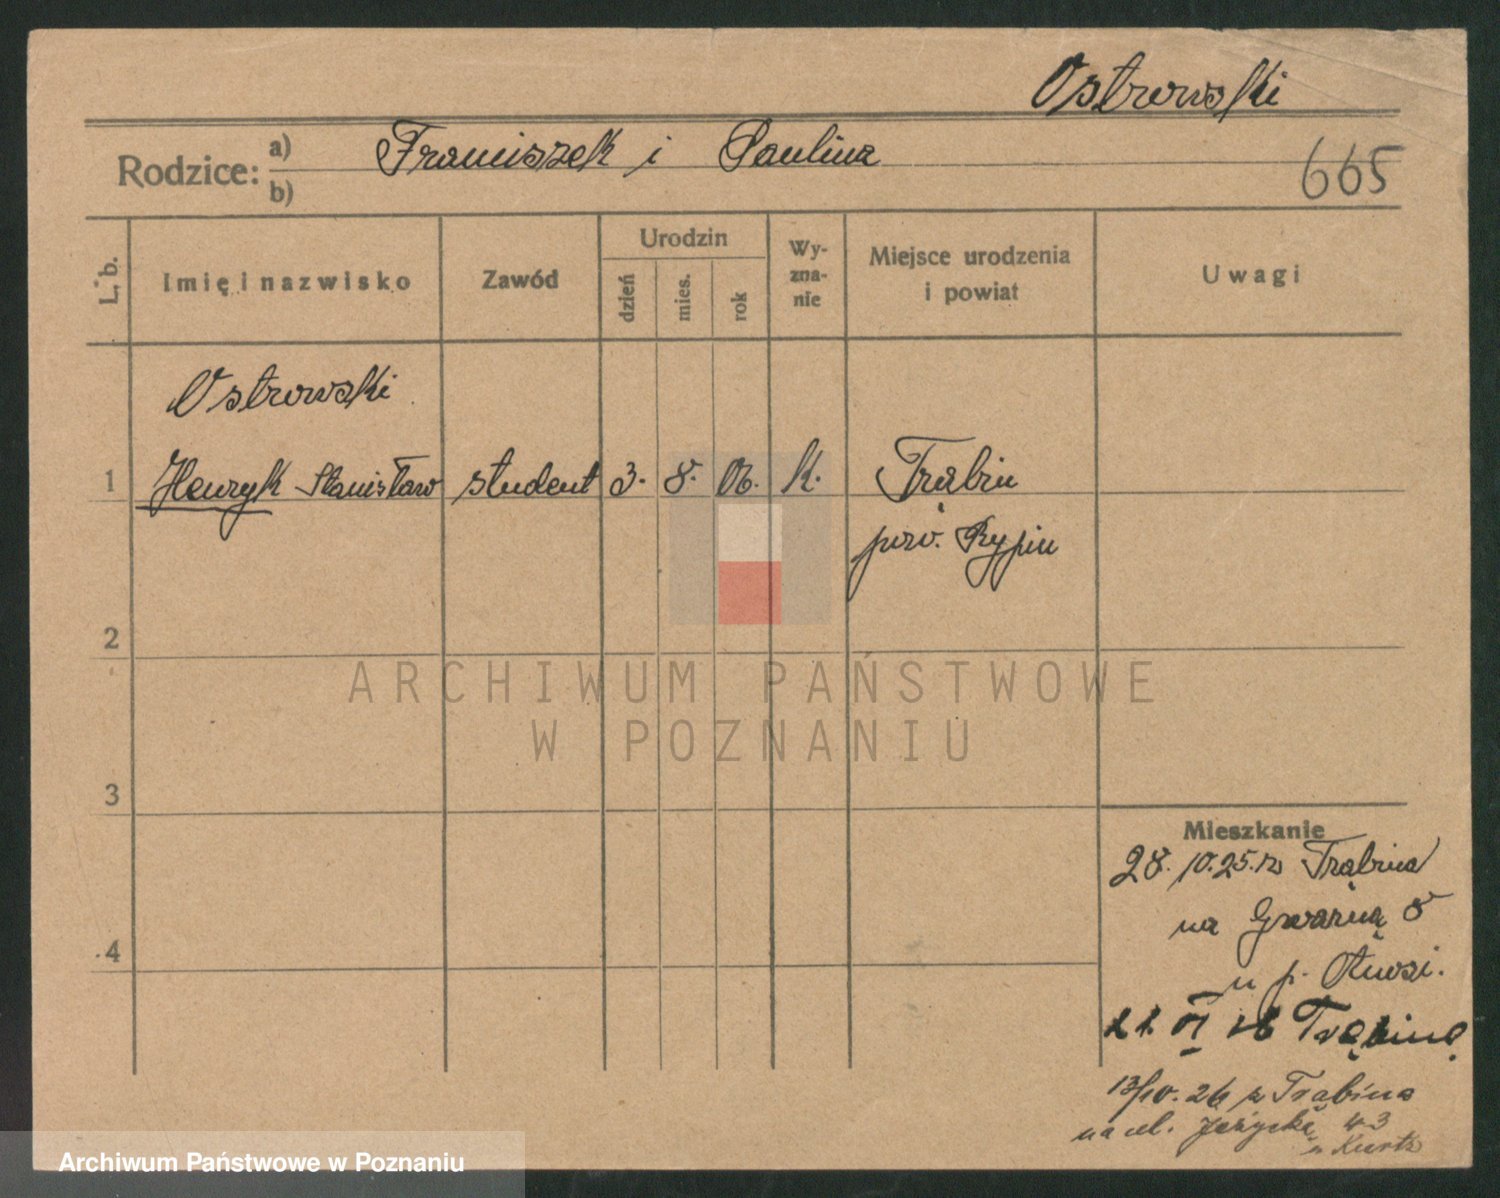 Ostrowski
Rodzice: a) Franciszek i Paulina
b)
665
L. b.
Imię i nazwisko
Zawód
Urodzin
dzień
mies.
rok
Wy-
zna-
nie
Miejsce urodzenia
i powiat
Uwagi
Ostrowski
1 Henryk Stanisław student 3. 8. 06. k. Trąbin
pow. Rypin
2
ARCHIWUM PAŃSTWOWE
W POZNANIU
3
Mieszkanie
28. 10. 25. z Trąbina
na Gwarną 8
u p.
21. VI 26 Trąbiną
4
13/10. 26 z Trąbina
na ul. Jeżycką 43
u Kurtz
Archiwum Państwowe w Poznaniu